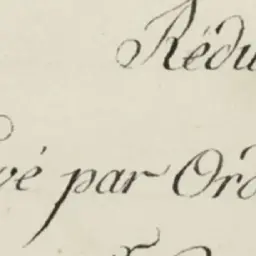 Rédu
vé par Ord